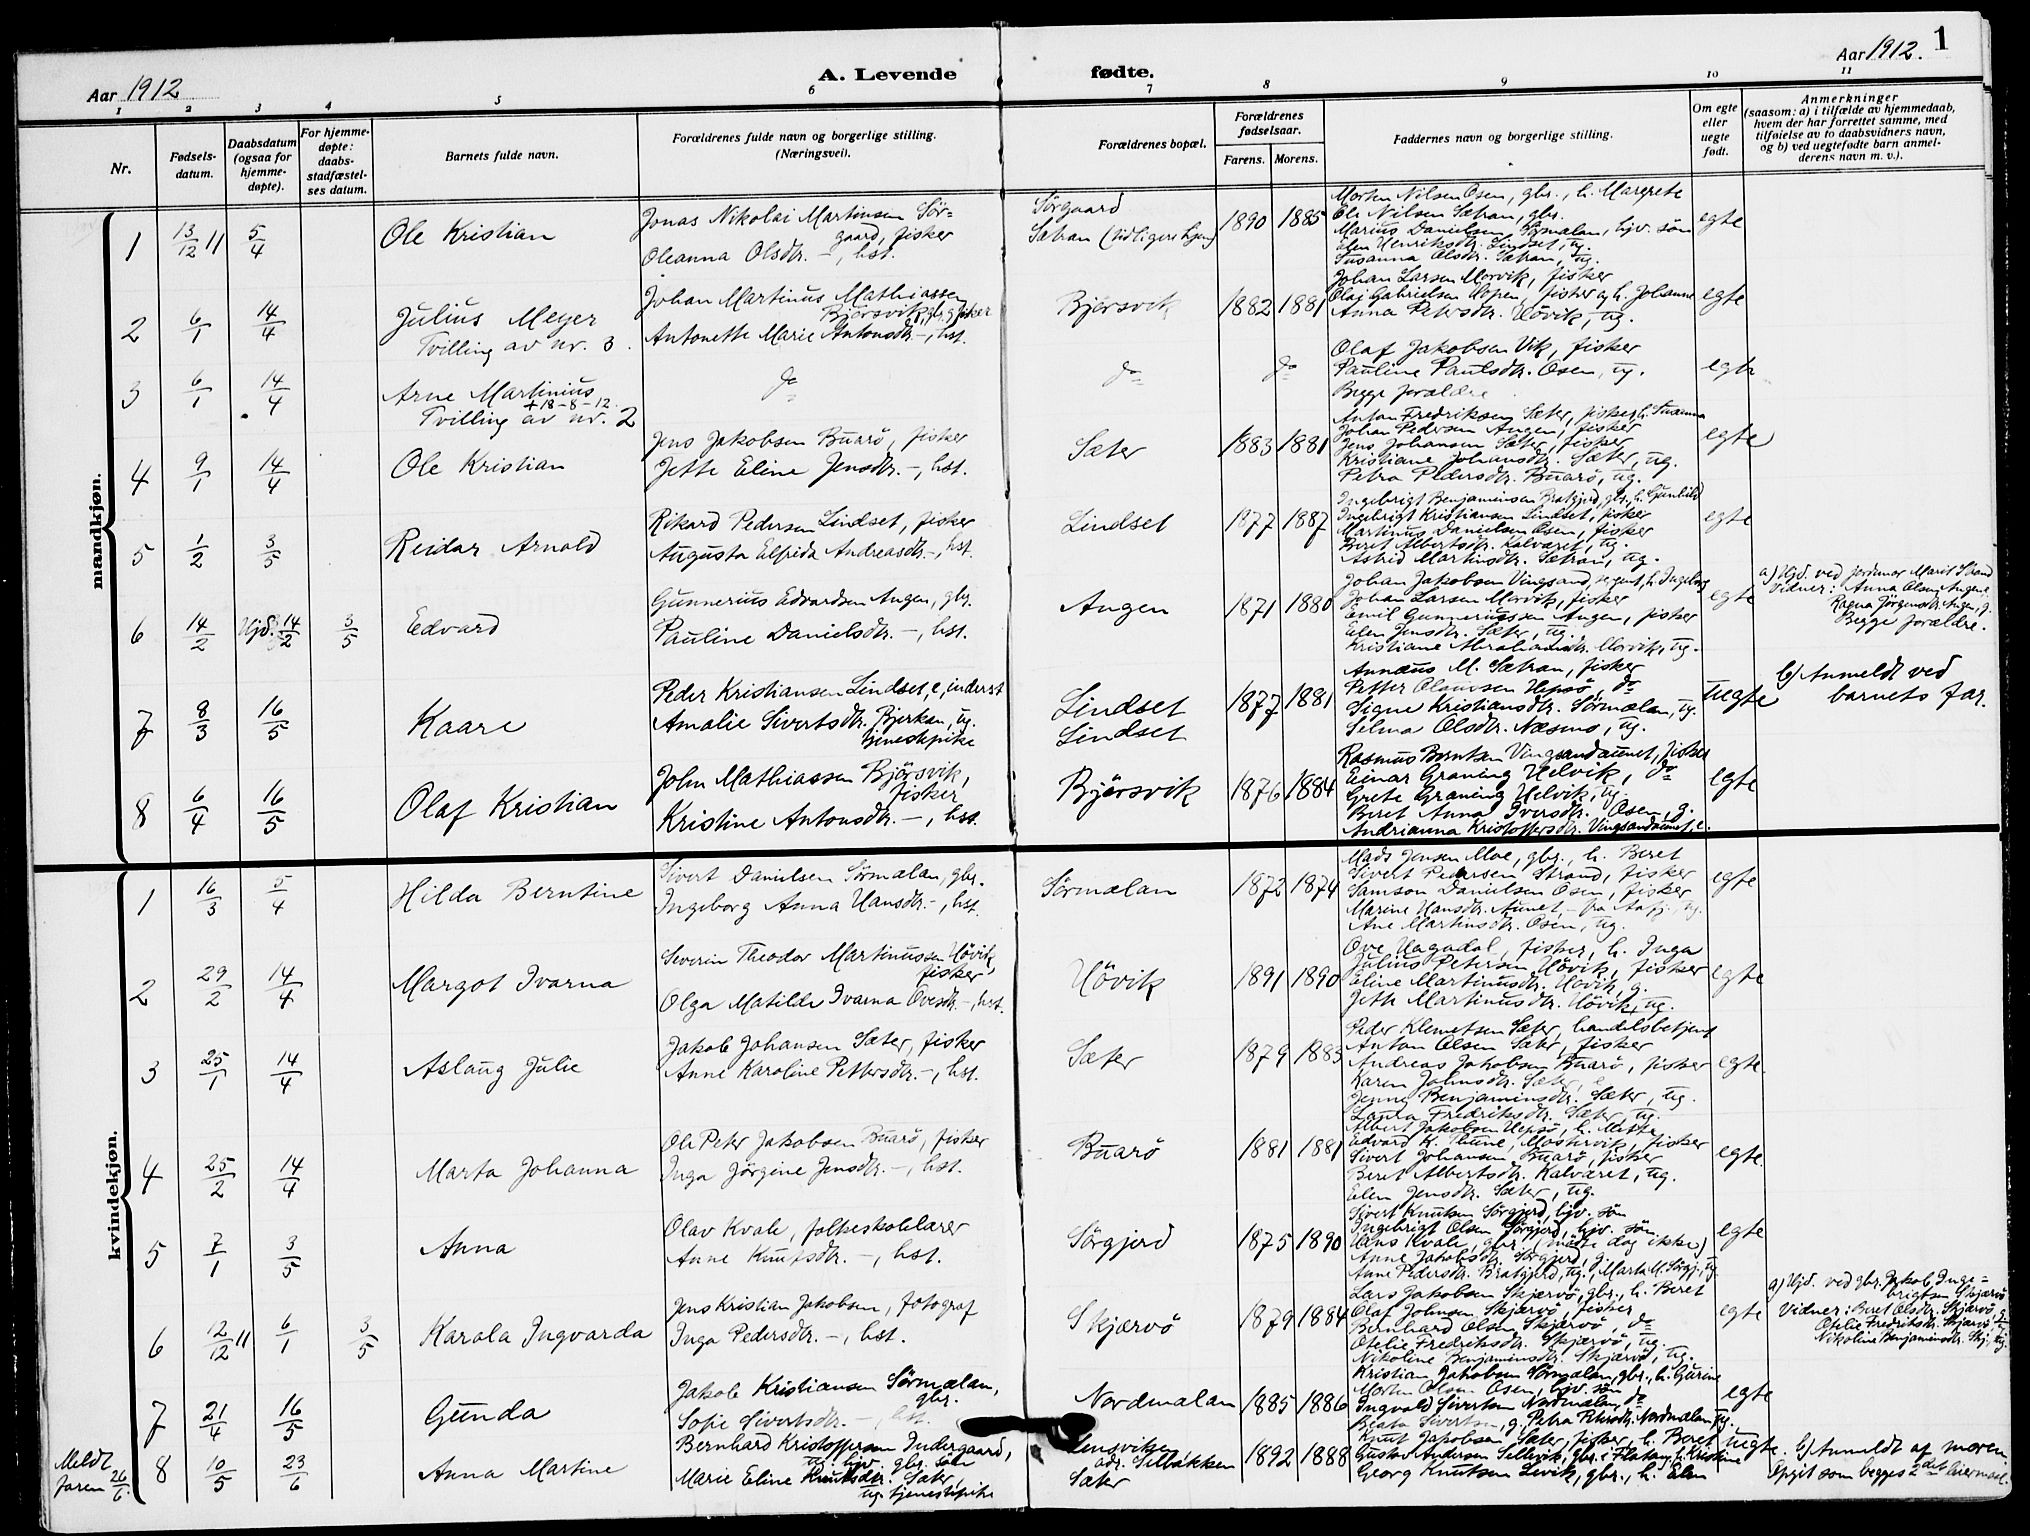 1
Aar 1912
A. Levende
fødte.
Aar 1912.
1 2 3 4 5 6 7 8 9 10 11
Nr.
Fødselsdatum.
Daabsdatum (ogsaa for hjemmedøpte).
For hjemmedøpte: daabsstadfæstelses datum.
Barnets fulde navn.
Forældrenes fulde navn og borgerlige stilling.
(Næringsvei).
Forældrenes bopæl.
Forældrenes fødselsaar.
Farens. Morens.
Faddernes navn og borgerlige stilling.
Om egte eller uegte født.
Anmerkninger
(saasom: a) i tilfælde av hjemmedaab,
hvem der har forrettet samme, med
tilføielse av to daabsvidners navn,
og b) ved uegtefødte barn anmelderens navn m. v.).
mandkjøn.
1 13/12 11 5/4 Ole Kristian
Jonas Nikolai Martinsen Sörgaard, fisker
Oleanna Olsdtr. –, hst.
Sörgaard
Sætran (tidligere hjem)
1890 1885
Morten Nilsen Osen, gbr., h. Margrete
Ole Nilsen Sætran, gbr.
Marius Danielsen Sörmalan, hjv. sön
Elen Henriksdtr. Lindset, ug.
Susanna Olsdtr. Sætran, ug.
egte
2 6/1 14/4 Julius Meyer
Tvilling av nr. 3.
Johan Martinus Mathiassen
Bjørsvik, gbr. fisker
Antonette Marie Antonsdtr. –, hst.
Bjørsvik
1882 1881
Johan Larsen Morvik, fisker
Olaj Gabrielsen Hopen, fisker og h. Johanna
Anna Petersdtr. Hövik, ug.
egte
3 6/1 14/4 Arne Martinius
+ 18-8-12.
Tvilling av nr. 2
do do do
Olaf Jakobsen Vik, fisker
Pauline Paulsdtr. Osen, ug.
Begge forældre.
egte
4 9/1 14/4 Ole Kristian
Jens Jakobsen Buarö, fisker
Jette Eline Jensdtr. –, hst.
Sæter
1883 1881
Anton Fredriksen Sæter, fisker, h. Susanna
Johan Pedersen Angen, fisker
Jens Johansen Sæter, fisker
Kristiane Johansdtr. Sæter, ug.
Petra Pedersdtr. Buarö, ug.
egte
5 1/2 3/5 Reidar Arnold
Rikard Pedersen Lindset, fisker
Augusta Elfrida Andreasdtr. –, hst.
Lindset
1877 1887
Ingebrigt Benjaminsen Bratgjerd, gbr., h. Gunhild
Ingebrigt Kristiansen Lindset, fisker
Martinus Danielsen Osen, fisker
Beret Albertsdtr. Kalvaret, ug.
Astrid Martinsdtr. Sætran, ug.
egte
6 14/2 Hjd. 14/2 3/5 Edvard
Gunnerius Edvardsen Angen, gbr.
Pauline Danielsdtr. –, hst.
Angen
1871 1880
Johan Jakobsen Vingsand, sergent, h. Ingeborg
Johan Larsen Morvik, fisker
Emil Gunneriussen Angen, fisker
Elen Jensdtr. Sæter, ug.
Kristiane Abrahamsdtr. Morvik, ug.
egte
a) Hjd. ved jordmor Marit Strand
Vidner: Anna Olsen Angen,
Ragna Jörgensdtr. Angen, g.
Begge forældre.
7 8/3 16/5 Kaare
Peder Kristiansen Lindset, e, inderst
Amalie Sivertsdtr. Bjerkan, ug.
tjenestepike
Lindset
Lindset
1877 1881
Annæus M. Sætran, fisker
Petter Olausen Hepsö, do
Signe Kristiansdtr. Sörmalan, ug.
Selma Olsdtr. Næsmo, ug.
uegte
b) Anmeldt ved
barnets far.
8 6/4 16/5 Olaf Kristian
John Mathiassen Bjørsvik,
fisker
Kristine Antonsdtr. –, hst.
Bjørsvik
1876 1884
Rasmus Berntsen Vingsandaunet, fisker
Einar Graning Helvik, do
Grete Graning Helvik, ug.
Beret Anna Iversdtr. Osen, g.
Andrianna Kristoffersdtr. Vingsandaunet, e.
egte
kvindekjøn.
1 16/3 5/4 Hilda Berntine
Sivert Danielsen Sörmalan, gbr.
Ingeborg Anna Hansdtr. –, hst.
Sörmalan
1872 1874
Mads Jensen Moe, gbr., h. Beret
Sivert Pedersen Strand, fisker
Samson Danielsen Osen, fisker
Marine Hansdtr. Aunet, – fra Aafj., ug.
Ane Martinsdtr. Osen, ug.
egte
2 29/2 14/4 Margot Ivarna
Severin Theodor Martinussen Hövik,
fisker
Olga Matilde Ivarna Ovesdtr. –, hst.
Hövik
1891 1890
Ove Hagadal, fisker, h. Inga
Julius Petersen Hövik, fisker
Eline Martinusdtr. Hövik, g.
Jette Martinusdtr. Hövik, ug.
egte
3 25/1 14/4 Aslaug Julie
Jakob Johansen Sæter, fisker
Anne Karoline Pettersdtr. –, hst.
Sæter
1879 1883
Peder Klemetsen Sæter, handelsbetjent
Anton Olsen Sæter, fisker
Andreas Jakobsen Buarö, fisker
Karen Johnsdtr. Sæter, e
Jenny Benjaminsdtr. Sæter, ug.
Laura Fredriksdtr. Sæter, ug.
egte.
4 25/2 14/4 Marta Johanna
Ole Peter Jakobsen Buarö, fisker
Inga Jörgine Jensdtr. –, hst.
Buarö
1881 1881
Albert Jakobsen Hepsö, h. Mette
Edvard K. Thune, Mostervik, fisker
Sivert Johansen Buarö, fisker
Beret Albertsdtr. Kalvaret, ug.
Elen Jensdtr. Sæter, ug.
egte.
5 7/1 3/5 Anna
Olav Kvale, folkeskolelærer
Anne Knutsdtr. –, hst.
Sörgjerd
1875 1890
Sivert Knutsen Sörgjerd, hjv. sön
Ingebrigt Olsen Sörgjerd, hjv. sön
Hans Kvale, gbr. (mötte dog ikke)
Anne Jakobsdtr. Sörgjerd, g.
Anne Pedersdtr. Bratgjerd, ug., Marta M. Sörgj., ug.
egte
6 12/12 11 6/1 3/5 Karola Ingvarda
Jens Kristian Jakobsen, fotograf
Inga Pedersdtr. –, hst.
Skjærvö
1879 1884
Lars Jakobsen Skjærvö, gbr., h. Beret
Olaf Johnsen Skjærvö, fisker
Bernhard Olsen Skjærvö, do
Otelie Fredriksdtr. Skjærvö, ug.
Nikoline Benjaminsdtr. Skjærvö, ug.
egte
a) Hjd. ved gbr. Jakob Ingebrigtsen Skjærvö
Vidner: Beret Olsdtr. Skjærvö, g.
Otelie Fredriksdtr. Skjærvö, ug.
Nikoline Benjaminsdtr. Skj., ug.
7 21/4 16/5 Gunda
Jakob Kristiansen Sörmalan,
gbr.
Sofie Sivertsdtr. –, hst.
Nordmalan
1885 1886
Kristian Jakobsen Sörmalan, gbr., h. Gurine
Morten Olsen Osen, hjv. sön
Ingvald Sivertsen Nordmalan, do
Beata Sivertsen, g., Petra Petersdtr. Nordmalan, ug.
egte
Meldt
faren 26/6.
8 10/5 23/6 Anna Martine
Bernhard Kristoffersen Indergaard,
ug. hjv. gbr. sön
Marie Eline Knutsdtr. Sæter,
ug. tjenestepike
Lensviken
adr. Selbækken
Sæter
1892 1888
Knut Jakobsen Sæter, fisker, h. Beret
Gustav Andersen Sellevik, gbr. i Flatøy, h. Kristine
Georg Knutsen Levik, gbr., h. Elen
uegte.
b) Anmeldt af moren.
Opgit som begges 2det leiermaal.